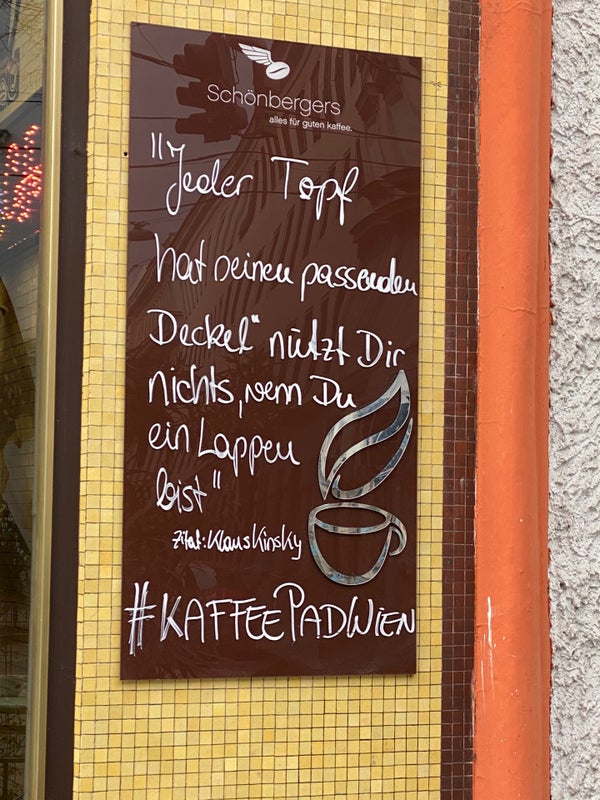 Schönbergers
alles für guten kaffee.
"Jeder Topf
hat seinen passenden
Deckel" nützt Dir
nichts, wenn Du
ein Lappen
bist"
Zitat: Klaus Kinsky
#KAFFEEPADWIEN